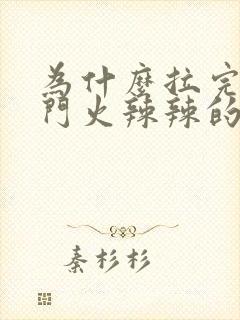 為什麼拉完
門火辣辣的
秦杉杉